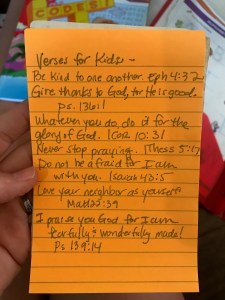 CODES!
Verses for Kids:-
Be Kind to one another. Eph 4:32
Give thanks to God, for He is good.
ps. 136:1
Whatever you do do it for the
glory of God. 1 Cor. 10:31
Never stop praying. 1 Thess 5:17
Do not be afraid for I am
with you. Isaiah 43:5
Love your neighbor as yourself
Matt 22:39
I praise you God for I am
fearfully & wonderfully made!
Ps 139:14